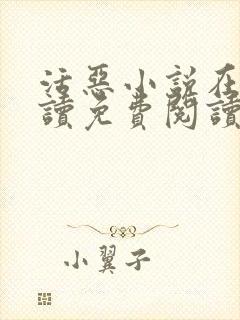 活惡小說在
讀免費閱讀
小翼子